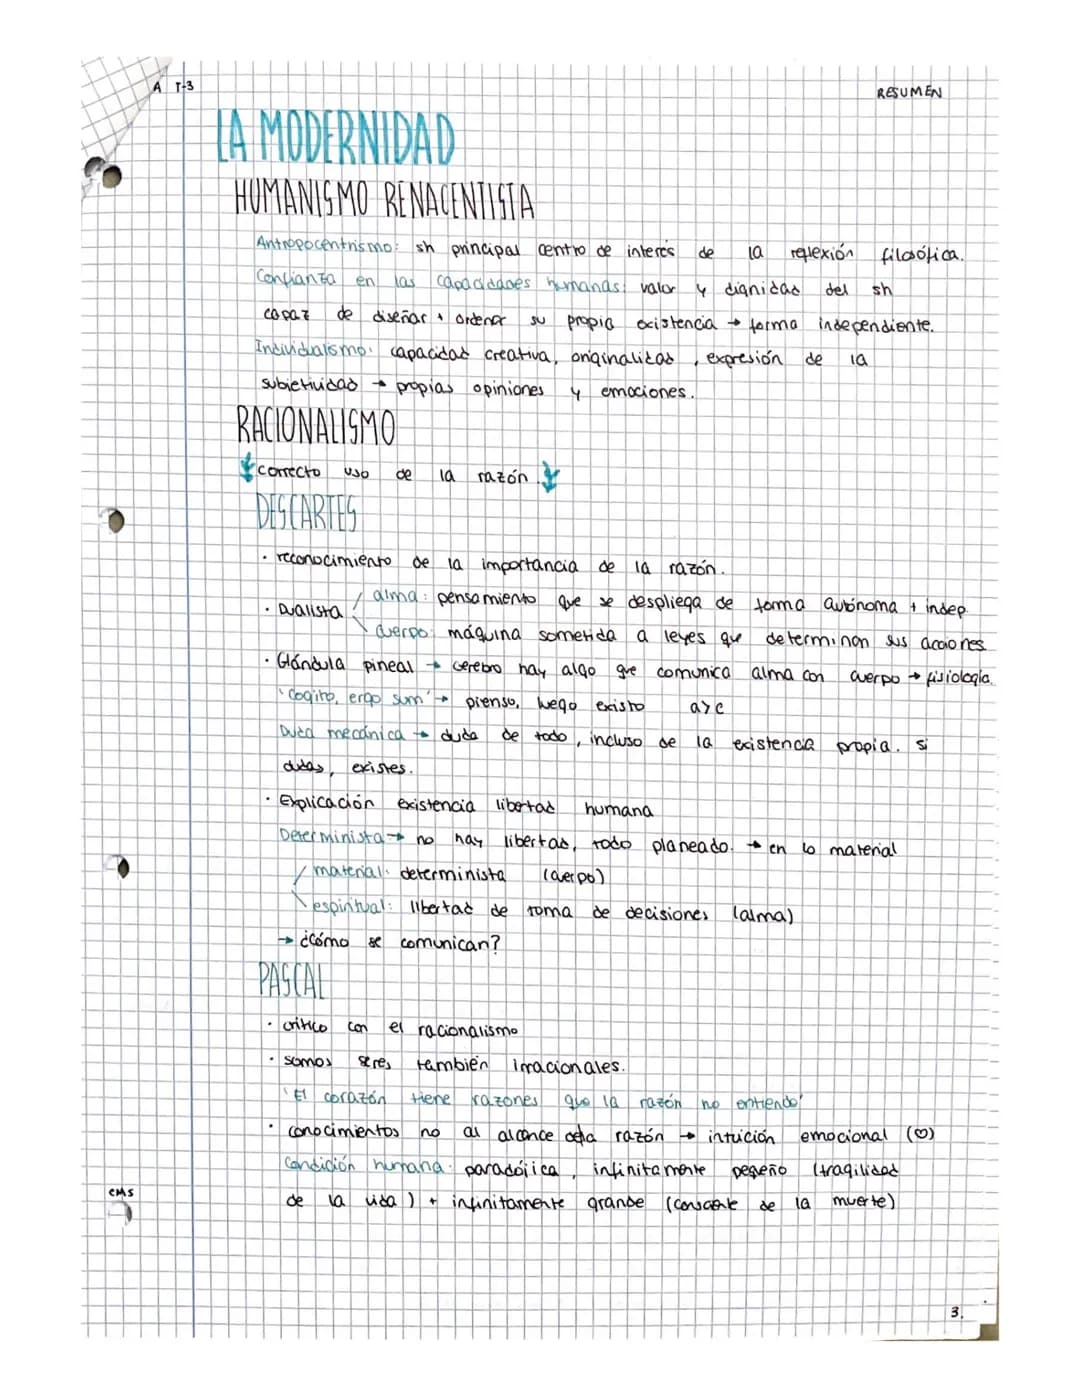 A T-3
RESUMEN
LA MODERNIDAD
HUMANISMO RENACENTISTA
Antropocentrismo: sh principal centro de interés de la reflexión filosófica.
Confianza en las capacidades humanas: valor y dignidad del sh
capaz de diseñar + ordenar su propia existencia → forma independiente.
Individualismo: capacidad creativa, originalidad, expresión de la
subjetividad → propias opiniones y emociones.
RACIONALISMO
correcto uso de la razón.
DESCARTES
· reconocimiento de la importancia de la razón.
alma: pensamiento que se despliega de forma autónoma + indep.
· Dualista
cuerpo: máquina sometida a leyes que determinan sus acciones
· Glándula pineal → cerebro hay algo que comunica alma con cuerpo → fisiología.
'Cogito, ergo sum' → pienso, luego existo a>c
Duda mecánica → duda de todo, incluso de la existencia propia. si
dudas, existes.
· Explicación existencia libertad humana
Determinista → no hay libertad, todo planeado. → en lo material
material: determinista (cuerpo)
espiritual: libertad de toma de decisiones (alma)
→ ¿cómo se comunican?
PASCAL
· crítico con el racionalismo
· somos seres también irracionales.
'El corazón tiene razones que la razón no entiende'
· conocimientos no al alcance de la razón → intuición emocional (♡)
Condición humana: paradójica, infinitamente pequeño (fragilidad
de la vida) + infinitamente grande (consciente de la muerte)
CMS
3.